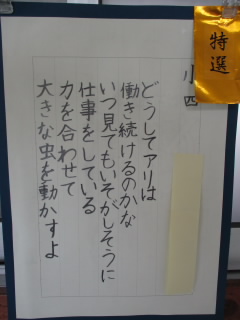 特選
小四
どうしてアリは
働き続けるのかな
いつ見てもいそがしそうに
仕事をしている
力を合わせて
大きな虫を動かすよ